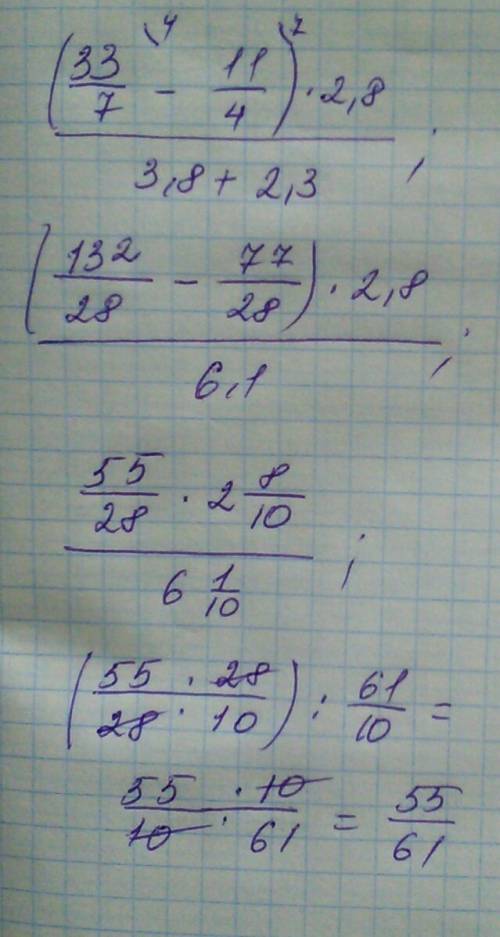 (33/7 \4 - 11/4 \7) · 2,8
3,8 + 2,3 ;
(132/28 - 77/28) · 2,8
6,1 ;
55/28 · 2 8/10
6 1/10 ;
(55 · 28 / 28 · 10) : 61/10 =
55 · 10 / 10 · 61 = 55/61